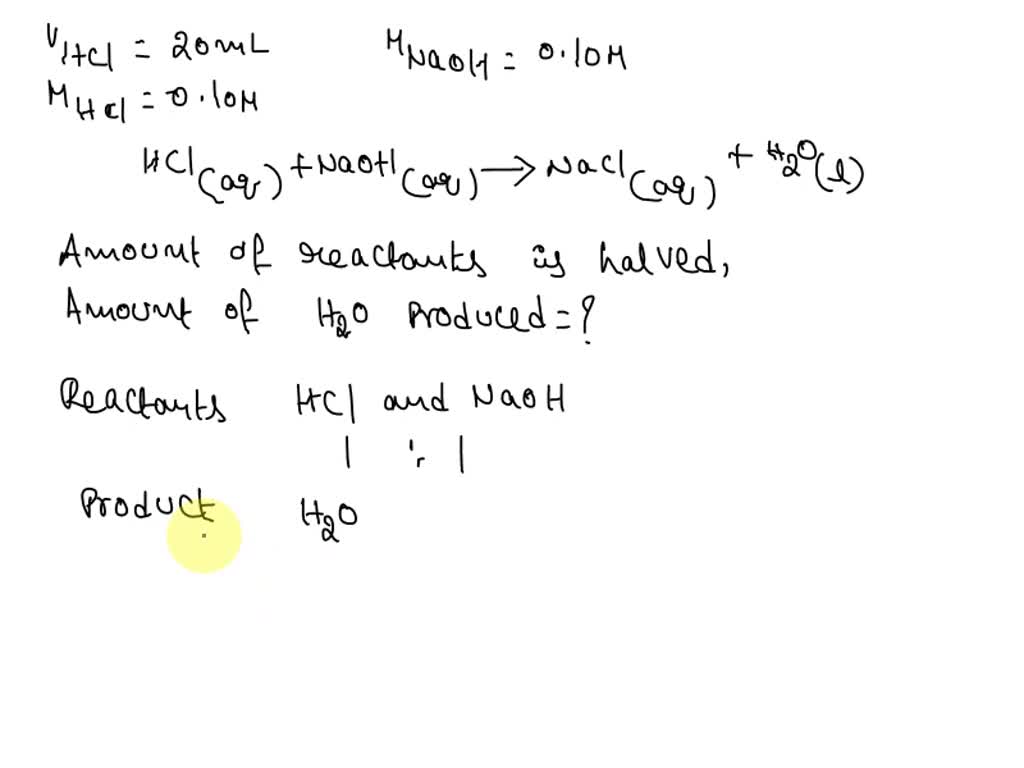 V HCl = 20 mL M NaOH = 0.10M
M HCl = 0.10M
HCl (aq) + NaOH (aq) → NaCl (aq) + H2O (l)
Amount of reactants is halved,
Amount of H2O Produced = ?
Reactants HCl and NaOH
1 : 1
Product H2O